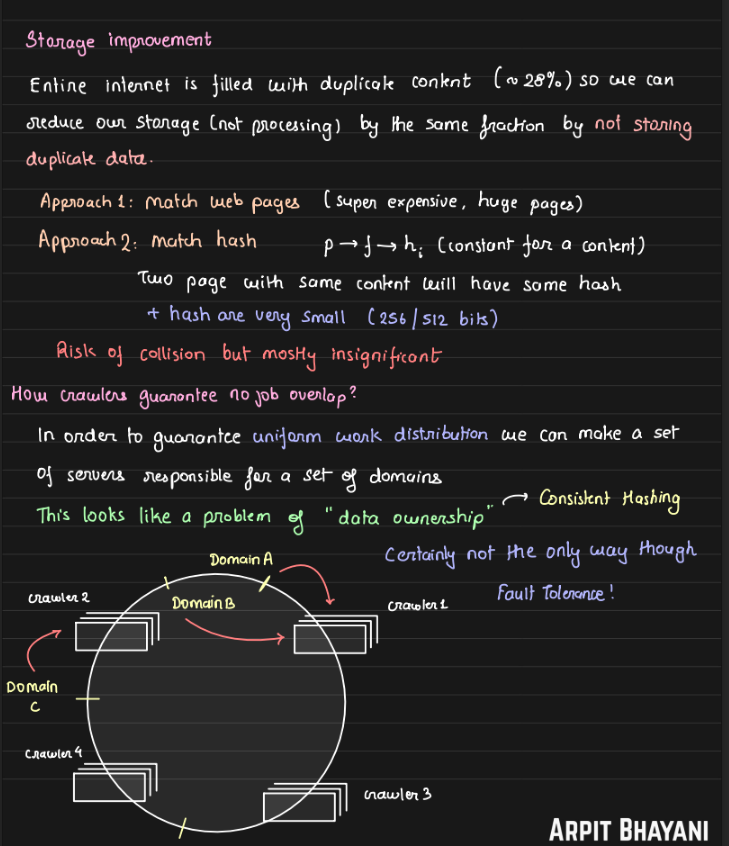 Storage improvement
Entire internet is filled with duplicate content (~ 28%) so we can
reduce our storage (not processing) by the same fraction by not storing
duplicate data.
Approach 1: match web pages (super expensive, huge pages)
Approach 2: match hash p → f → hi (constant for a content)
Two page with same content will have same hash
+ hash are very small (256 / 512 bits)
Risk of collision but mostly insignificant
How crawlers guarantee no job overlap?
In order to guarantee uniform work distribution we can make a set
of servers responsible for a set of domains
This looks like a problem of "data ownership" → Consistent Hashing
Certainly not the only way though
Fault Tolerance!
Domain A
Domain B
Crawler 2
Crawler 1
Domain
C
Crawler 4
Crawler 3
ARPIT BHAYANI